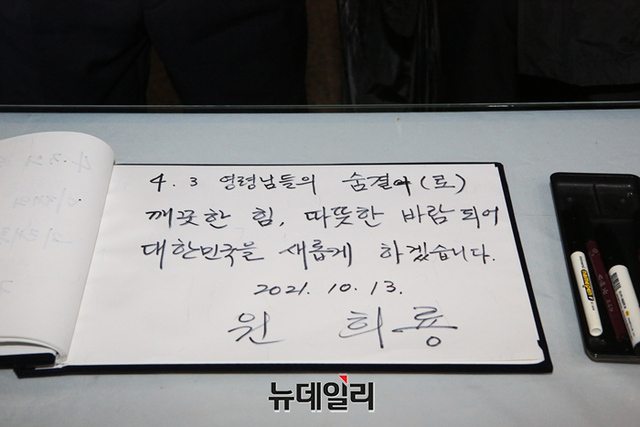 4. 3 영령님들의 숨결이 (로)
깨끗한 힘, 따뜻한 바람 되어
대한민국을 새롭게 하겠습니다.
2021. 10. 13.
원 희 룡
뉴데일리